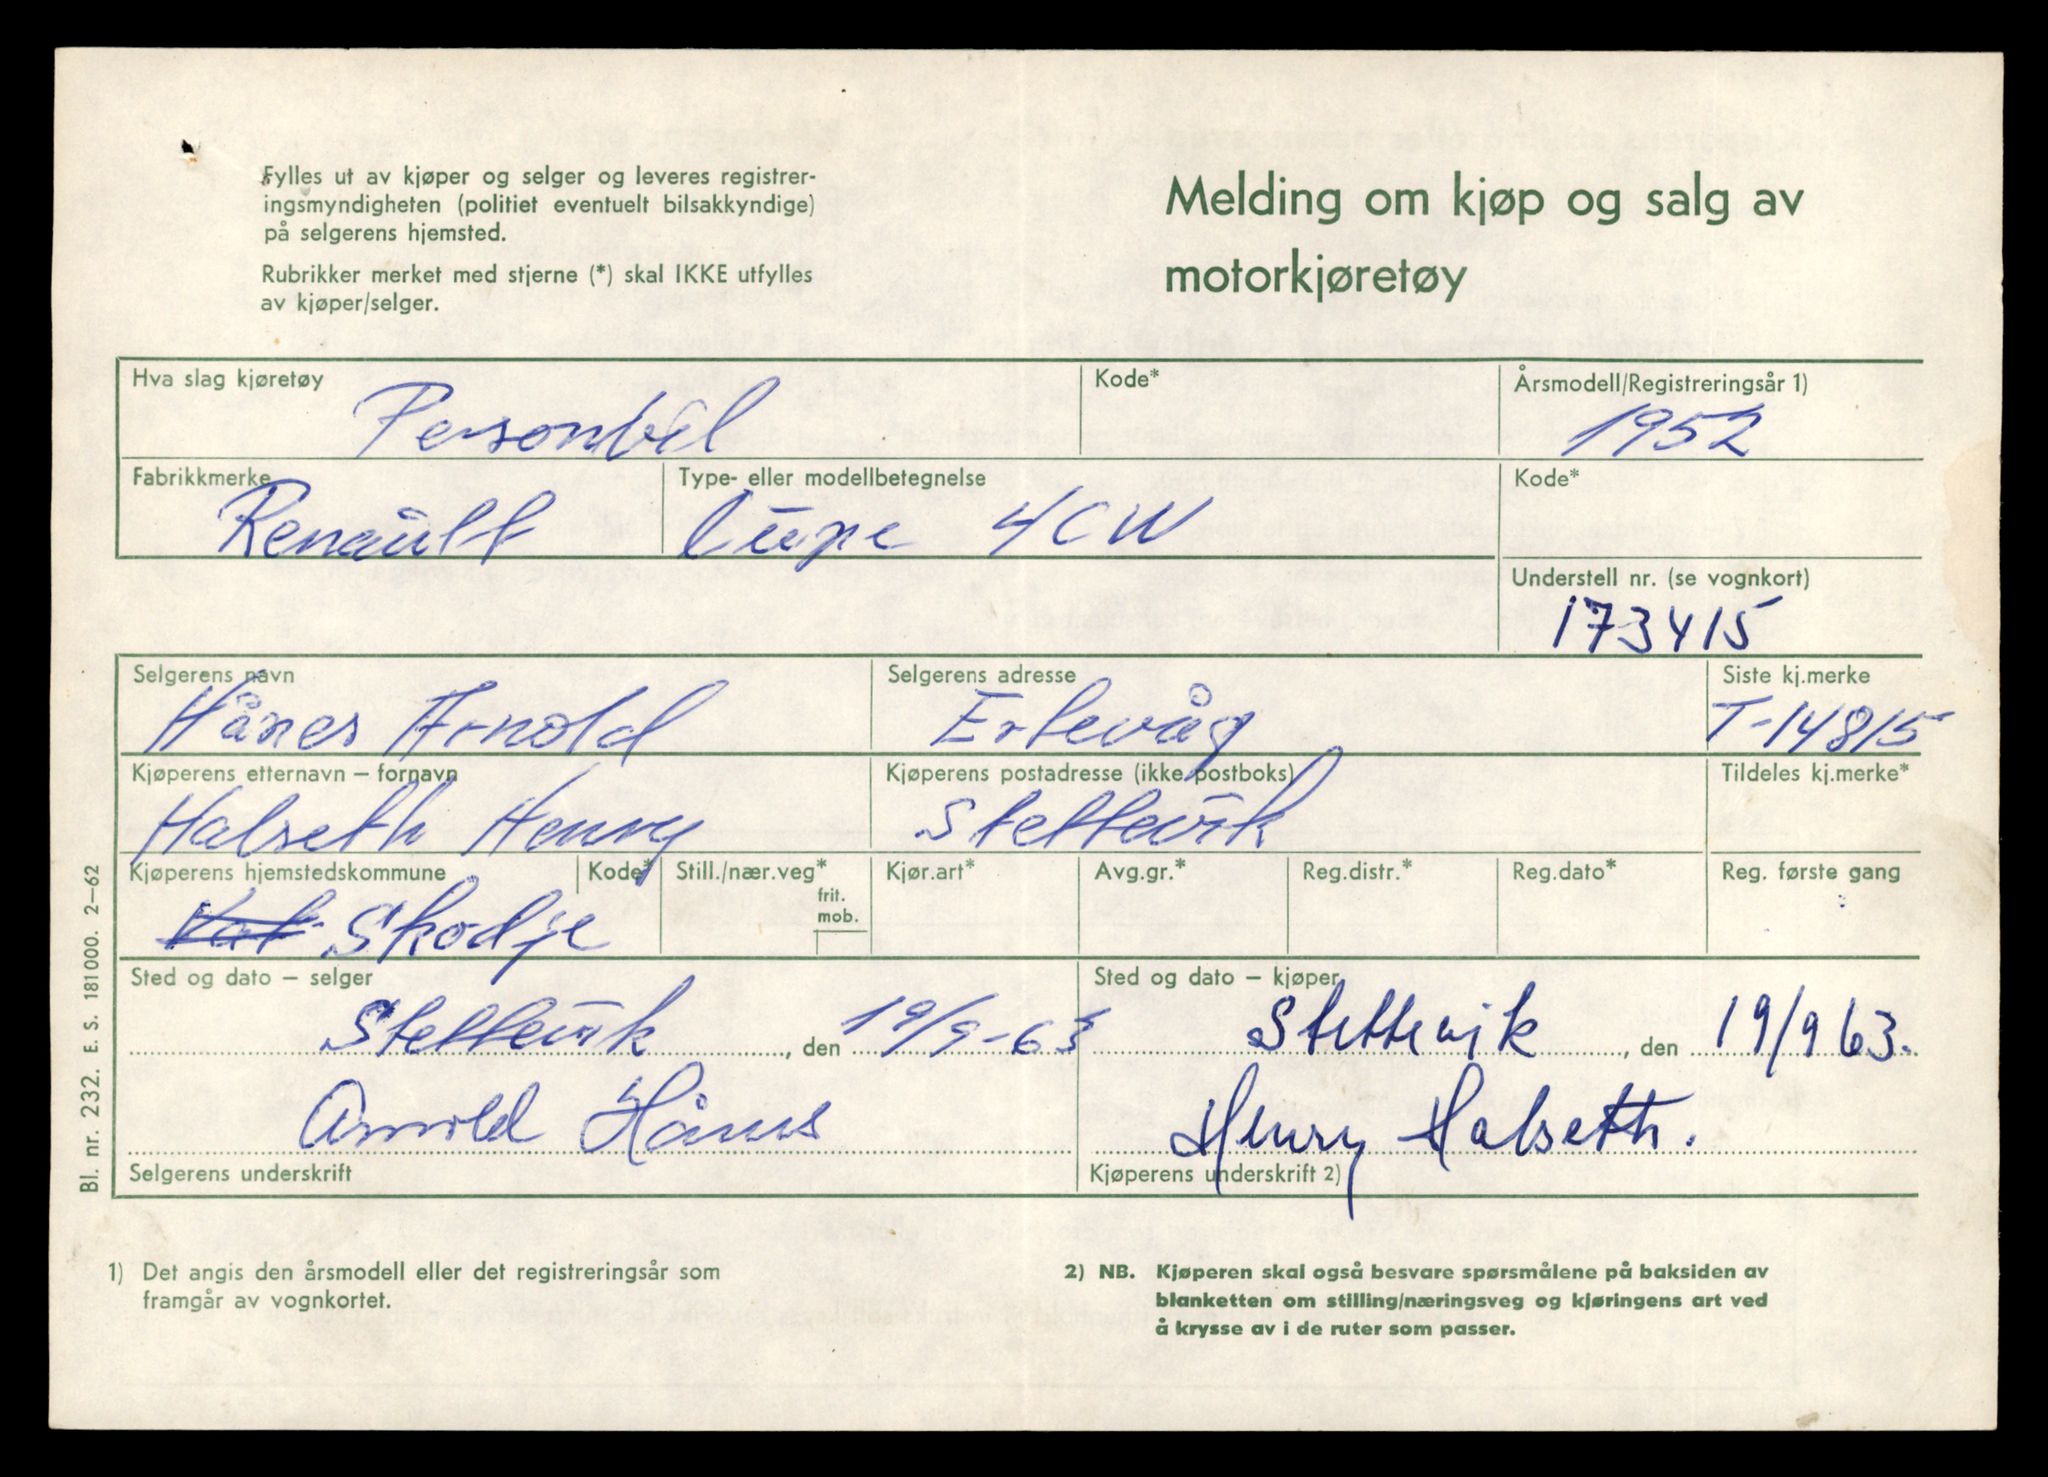 Fylles ut av kjøper og selger og leveres registrer-
ingsmyndigheten (politiet eventuelt bilsakkyndige)
på selgerens hjemsted.
Rubrikker merket med stjerne (*) skal IKKE utfylles
av kjøper/selger.
Melding om kjøp og salg av
motorkjøretøy
Hva slag kjøretøy
Personbil
Kode*
Årsmodell/Registreringsår 1)
1952
Fabrikkmerke
Renault
Type- eller modellbetegnelse
4CW
Kode*
Understell nr. (se vognkort)
173415
Selgerens navn
Hånes Arnold
Selgerens adresse
Ertevåg
Siste kj.merke
T-14815
Kjøperens etternavn – fornavn
Halseth Henry
Kjøperens postadresse (ikke postboks)
Stettevik
Tildeles kj.merke*
Kjøperens hjemstedskommune
Skodje
Kode*
Still./nær.veg*
frit.
mob.
Kjør.art*
Avg.gr.*
Reg.distr.*
Reg.dato*
Reg. første gang
Sted og dato – selger
Stettevik, den 19/9-63
Arnold Hånes
Selgerens underskrift
Sted og dato – kjøper
Stettevik, den 19/9 63.
Henry Halseth.
Kjøperens underskrift 2)
Bl. nr. 232. E. S. 181000. 2–62
1) Det angis den årsmodell eller det registreringsår som
framgår av vognkortet.
2) NB. Kjøperen skal også besvare spørsmålene på baksiden av
blanketten om stilling/næringsveg og kjøringens art ved
å krysse av i de ruter som passer.